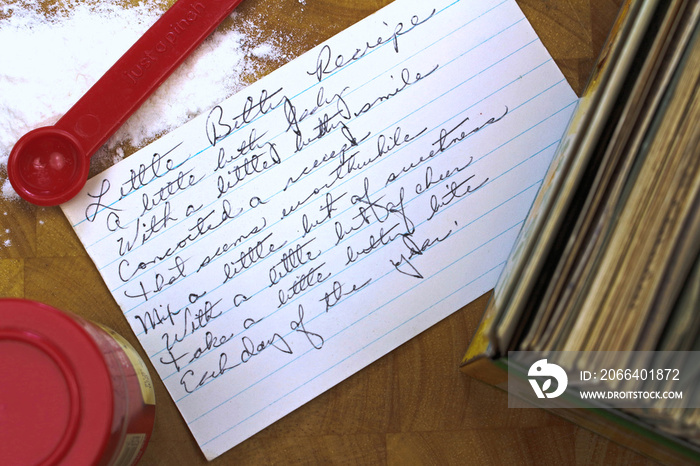 just a pinch
Little Bitty Recipe
A little bitty lady
With a little bitty smile
Concocted a receipt
That seems worthwhile
Mix a little bit of sweetness
With a little bit of cheer
Take a little bitty bite
Each day of the year.
ID: 2066401872
WWW.DTSTOCK.COM